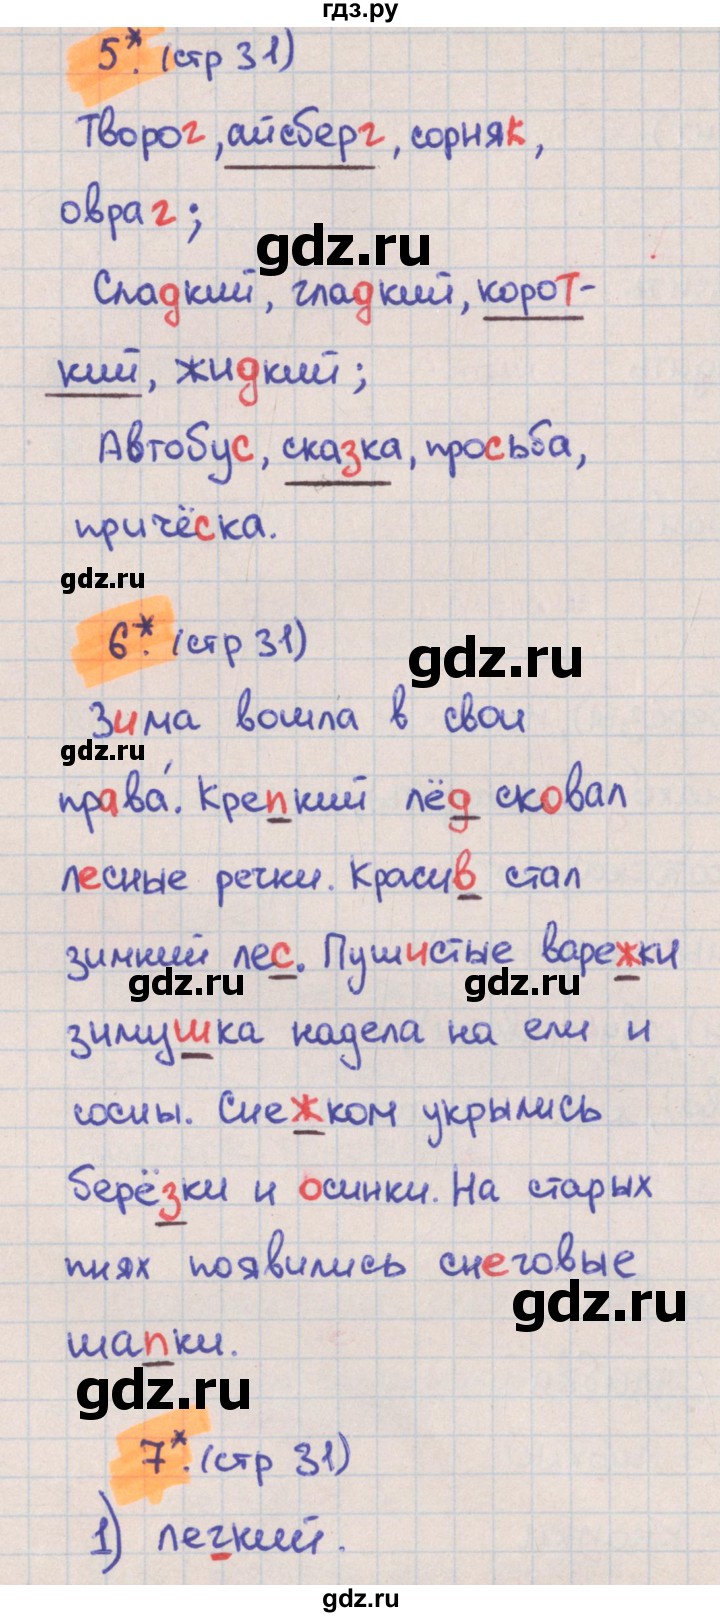 гдз.ру
5*. (стр 31)
Творог, айсберг, сорняк,
овраг;
gdz.ru
Сладкий, гладкий, корот-
кий, жидкий;
Автобус, сказка, просьба,
причёска.
gdz.ru
6*. (стр 31)
gdz.ru
Зима вошла в свои
gdz.ru
права́. Крепкий лёд сковал
лесные речки. Красив стал
зимний лес. Пушистые варежки
gdz.ru
gdz.ru
зимушка надела на ели и
сосны. Снежком укрылись
берёзки и осинки. На старых
пнях появились снеговые
gdz.ru
шапки.
gdz.ru
7*. (стр 31)
1) легкий.
gdz.ru